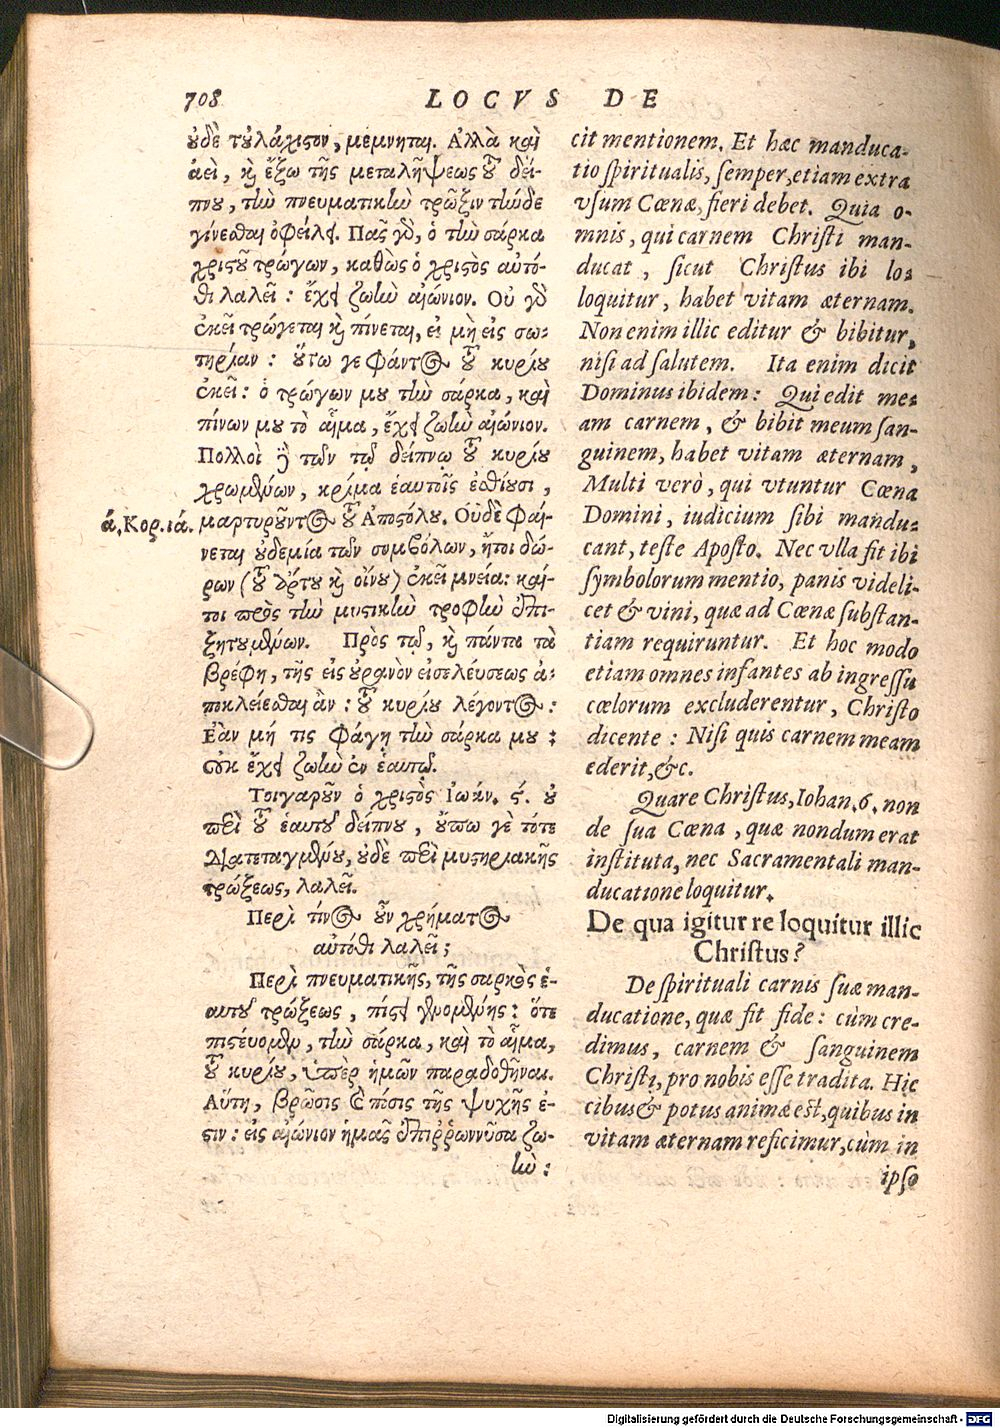 708
LOCVS DE
οὐδὲ τοὐλάχιστον, μέμνηται. Ἀλλὰ καὶ
ἀεὶ, καὶ ἔξω τῆς μεταλήψεως τοῦ δεί-
πνου, τὴν πνευματικὴν τρῶξιν τήνδε
γίνεσθαι ὀφείλει. Πᾶς γὸ, ὁ τὴν σάρκα
χριστοῦ τρώγων, καθὼς ὁ χριστὸς αὐτό-
θι λαλεῖ: ἔχει ζωὴν αἰώνιον. Οὐ γὸ
ἐκεῖ τρώγεται καὶ πίνεται, εἰ μὴ εἰς σω-
τηρίαν: οὕτω γε φάντος τοῦ κυρίου
ἐκεῖ: ὁ τρώγων μου τὴν σάρκα, καὶ
πίνων μου τὸ αἷμα, ἔχει ζωὴν αἰώνιον.
Πολλοὶ δὲ τῶν τῷ δείπνῳ τοῦ κυρίου
χρωμένων, κρίμα ἑαυτοῖς ἐσθίουσι,
ά. Κορ. ιά.
μαρτυροῦντος τοῦ Ἀποστόλου. Οὐδὲ φαί-
νεται οὐδεμία τῶν συμβόλων, ἤτοι δώ-
ρων (τοῦ ἄρτου καὶ οἴνου) ἐκεῖ μνεία: καί-
τοι πρὸς τὴν μυστικὴν τροφὴν ἐπι-
ζητουμένων. Πρὸς τῷ, καὶ πάντα τὰ
βρέφη, τῆς εἰς οὐρανὸν εἰσελεύσεως ἀ-
ποκλείεσθαι ἂν: τοῦ κυρίου λέγοντος:
Ἐὰν μή τις φάγῃ τὴν σάρκα μου:
οὐκ ἔχει ζωὴν ἐν ἑαυτῷ.
Τοιγαροῦν ὁ χριστὸς Ἰωάν. ς. οὐ
περὶ τοῦ ἑαυτοῦ δείπνου, οὔπω γὲ τότε
διατεταγμένου, οὐδὲ περὶ μυστηριακῆς
τρώξεως, λαλεῖ.
Περὶ τίνος οὖν χρήματος
αὐτόθι λαλεῖ;
Περὶ πνευματικῆς, τῆς σαρκὸς ἑ-
αυτοῦ τρώξεως, πίστει γινομένης: ὅτε
πιστεύομεν, τὴν σάρκα, καὶ τὸ αἷμα,
τοῦ κυρίου, ὑπὲρ ἡμῶν παραδοθῆναι.
Αὕτη, βρῶσις καὶ πόσις τῆς ψυχῆς ἐ-
στιν: εἰς αἰώνιον ἡμᾶς ἐπιῤῥωννῦσα ζω-
ὴν:
cit mentionem. Et hæc manduca-
tio spiritualis, semper, etiam extra
vsum Cœnæ, fieri debet. Quia o-
mnis, qui carnem Christi man-
ducat, sicut Christus ibi lo-
loquitur, habet vitam æternam.
Non enim illic editur & bibitur,
nisi ad salutem. Ita enim dicit
Dominus ibidem: Qui edit me-
am carnem, & bibit meum san-
guinem, habet vitam æternam,
Multi verò, qui vtuntur Cœna
Domini, iudicium sibi mandu-
cant, teste Aposto. Nec vlla fit ibi
symbolorum mentio, panis videli-
cet & vini, quæ ad Cœnæ substan-
tiam requiruntur. Et hoc modo
etiam omnes infantes ab ingressu
cœlorum excluderentur, Christo
dicente: Nisi quis carnem meam
ederit, &c.
Quare Christus, Iohan. 6. non
de sua Cœna, quæ nondum erat
instituta, nec Sacramentali man-
ducatione loquitur.
De qua igitur re loquitur illic
Christus?
De spirituali carnis suæ man-
ducatione, quæ fit fide: cùm cre-
dimus, carnem & sanguinem
Christi, pro nobis esse tradita. Hic
cibus & potus animæ est, quibus in
vitam æternam reficimur, cùm in
ipso
Digitalisierung gefördert durch die Deutsche Forschungsgemeinschaft - DFG